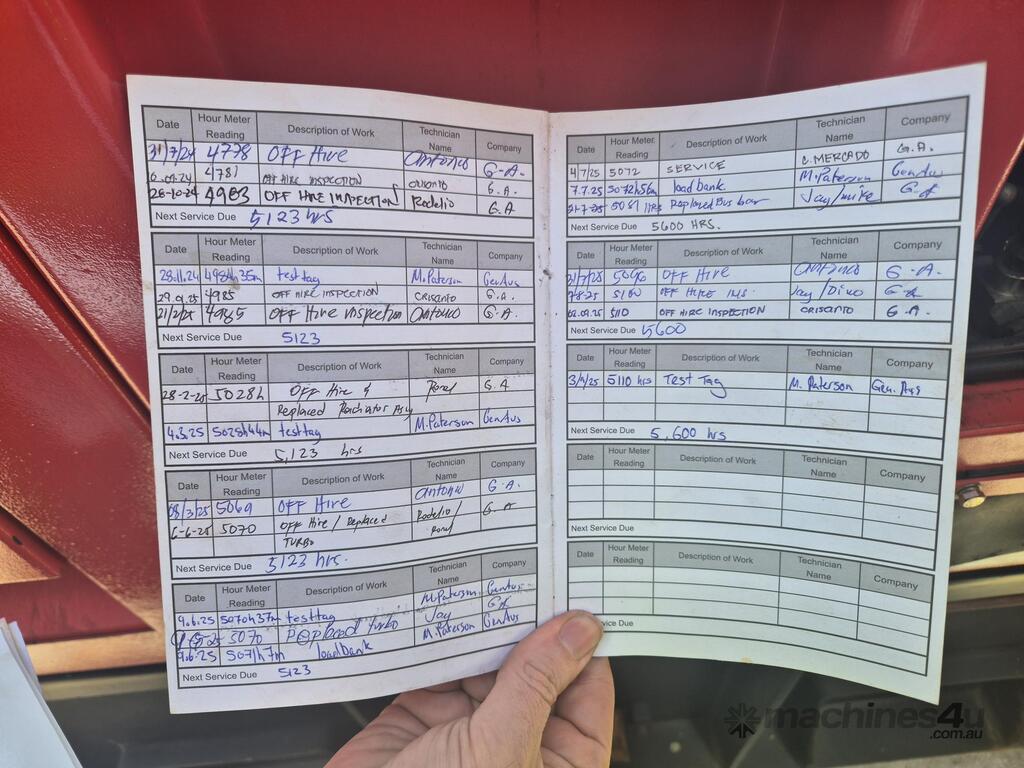 Date Hour Meter Reading Description of Work Technician Name Company
31/7/24 4778 OFF Hire Antonio G-A.
4781 OFF HIRE INSPECTION CRISANTO G.A.
28-10-24 4983 OFF HIRE INSPECTION Rodelio G.A
Next Service Due 5123 hrs
Date Hour Meter Reading Description of Work Technician Name Company
28.11.24 4984h35m test tag M.Paterson GenAus
29.9.25 4985 OFF HIRE INSPECTION CRISANTO G.A.
21/2/25 4985 OFF Hire inspection Antonio G.A.
Next Service Due 5123
Date Hour Meter Reading Description of Work Technician Name Company
28-2-25 5028h OFF Hire & Ronel G.A
Replaced Radiator Assy
4.3.25 5028h44m test tag M.Paterson GenAus
Next Service Due 5,123 hrs
Date Hour Meter Reading Description of Work Technician Name Company
08/3/25 5069 OFF Hire Antonio G.A.
6-6-25 5070 OFF Hire / Replaced Rodelio / G.A
TURBO Ronel
Next Service Due 5123 hrs.
Date Hour Meter Reading Description of Work Technician Name Company
9.6.25 5070h37m test tag M.Paterson GenAus
5070 Replaced turbo Jay GA
9.6.25 5071h7m loadbank M.Paterson GenAus
Next Service Due 5123
Date Hour Meter Reading Description of Work Technician Name Company
4/7/25 5072 SERVICE C.MERCADO G.A.
7.7.25 5072h56m loadbank M.Paterson GenAus
31-7-25 5081 HRS Replaced Bus bar Jay/mike GA
Next Service Due 5600 HRS.
Date Hour Meter Reading Description of Work Technician Name Company
31/7/25 5096 OFF Hire Antonio G-A.
7-8-25 5100 OFF HIRE INS. Jay/Dino GA
02.09.25 5110 OFF HIRE INSPECTION CRISANTO G.A.
Next Service Due 5600
Date Hour Meter Reading Description of Work Technician Name Company
3/9/25 5110 hrs Test Tag M. Paterson Gen. Aus
Next Service Due 5,600 hrs
Date Hour Meter Reading Description of Work Technician Name Company
Next Service Due
Date Hour Meter Reading Description of Work Technician Name Company
Service Due
machines4u
.com.au